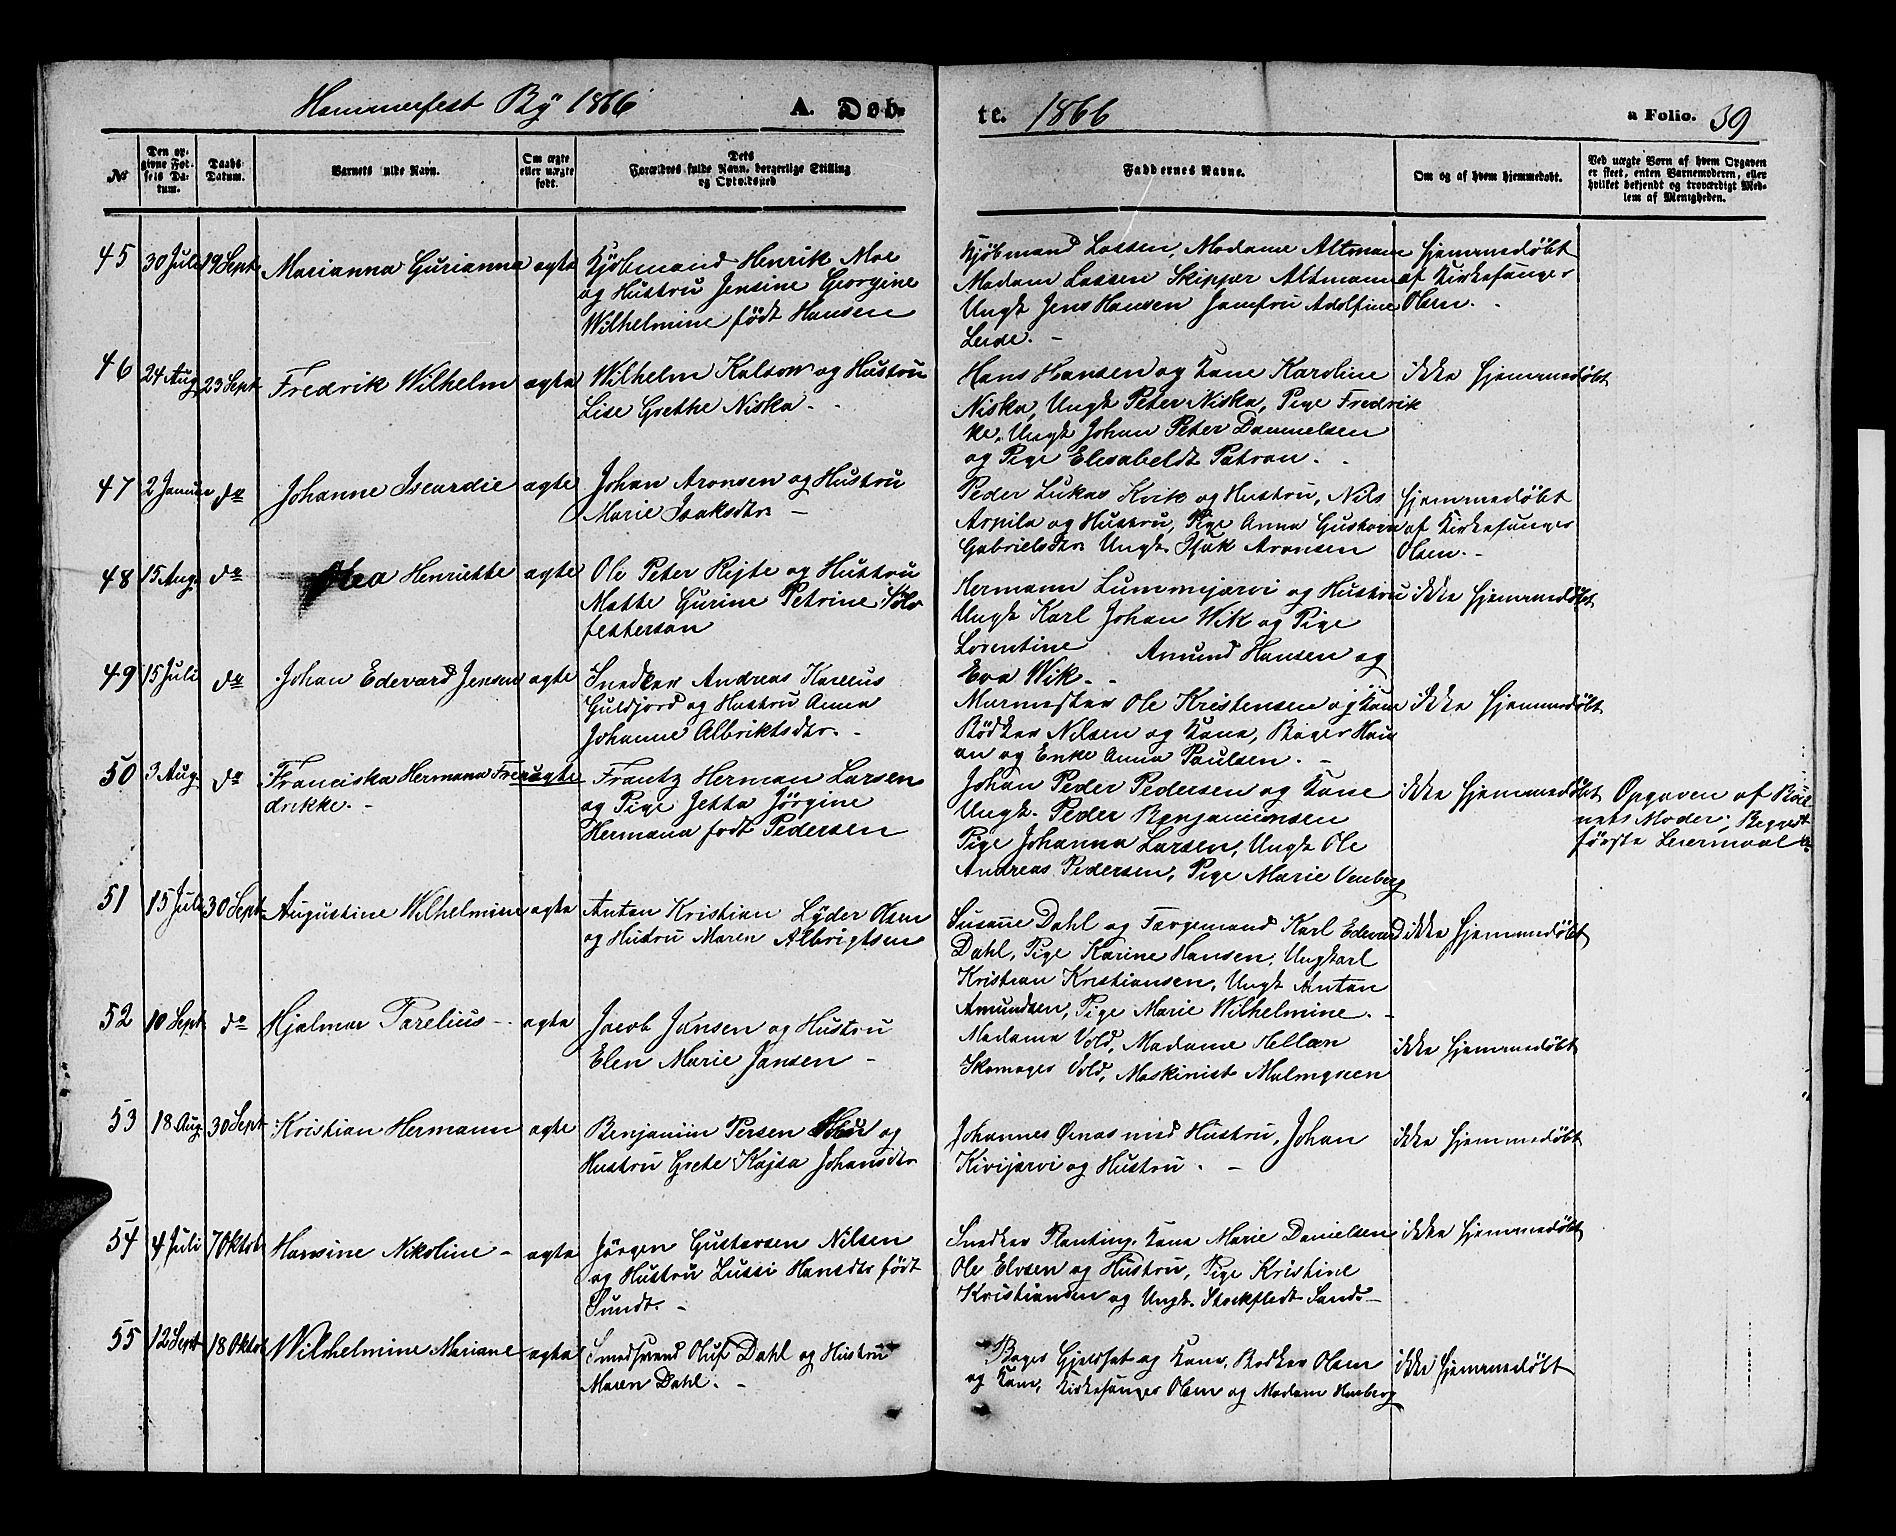 Hammerfest By 1866 A. Døb-
te. 1866 a Folio. 39
No
Den opgivne Fødsels Datum.
Daabs Datum.
Barnets fulde Navn.
Om ægte eller uægte født.
Dets Forældres fulde Navn, borgerlige Stilling og Opholdssted
Faddernes Navne.
Om og af hvem hjemmedøbt.
Ved uægte Børn af hvem Opgaven er skeet, enten Barnemoderen, eller hvilket bekjendt og troværdigt Medlem af Menigheden.
45 30 Juli 19 Sept Marianna Gurianna ægte Kjøbmand Henrik Moe
og Hustru Jensine Georgine
Wilhelmine født Hansen
Kjøbmand Lassen, Madame Altmann
Madam Lassen Skipper Altmann
Ungk Jens Hansen Jomfru Adolfine
Leide. -
Hjemmedøbt
af Kirkesanger
Olsen. -
46 24 Aug 23 Sept Fredrik Wilhelm ægte Wilhelm Kolson og Hustru
Lise Grethe Niska. -
Hans Hansen og Kone Karoline
Niska, Ungk Peter Niska, Pige Fredrik
ke, Ungk Johan Peter Danielsen
og Pige Elisabeldt Patron. -
ikke hjemmedøbt
47 2 Januar do Johanne Iscardie ægte Johan Aronsen og Hustru
Marie Isaksdtr -
Peder Lukas Kvik og Hustru, Nils
Arpila og Hustru, Pige Anna Gustava
Gabrielsdtr Ungk. Isak Aronsen
Hjemmedøbt
af Kirkesanger
Olsen. -
48 15 Aug. do Olea Henriette ægte Ole Peter Rejte og Hustru
Mette Gurine Petrine Søl
festersen
Hermann Lummijarvi og Hustru
Ungk Karl Johan Wik og Pige
Lorentine Amund Hansen og
Eva Wik. -
ikke hjemmedøbt
49 15 Juli do Johan Edevard Jensen ægte Snedker Andreas Karelius
Guldfjord og Hustru Anna
Johanne Albriktsdtr. -
Murmester Ole Kristensen og Kone
Bødker Nilsen og Kone, Bager
og Enke Anna Paulsen. -
ikke hjemmedøbt
50 3 Aug. do Franciska Hermana Fre uægte
drikke. -
Frantz Herman Larsen
og Pige Jetta Jörgine
Hermana født Pedersen
Johan Peder Pedersen og Kone
Ungk. Peder Benjaminsen
Pige Johanna Larsen, Ungk Ole
Andreas Pedersen, Pige Marie Venberg
ikke hjemmedøbt
Opgaven af Bar
nets Moder; Begges
første Leiermaal
51 15 Juli 30 Sept Augustine Wilhelmine ægte Anton Kristian Lyder Olsen
og Hustru Maren Albrigtsen
Susane Dahl og Færgemand Karl Edevard
Dahl, Pige Karine Hansen, Ungkarl
Kristian Kristiansen, Ungk Anton
Amundsen, Pige Marie Wilhelmine. -
ikke hjemmedøbt
52 10 Sept do Hjalmar Tarelius - ægte Jacob Jansen og Hustru
Elen Marie Jansen -
Madame Vold, Madame Hellan
Skomager Vold, Maskinist Malmgreen
ikke hjemmedøbt
53 18 Aug. 30 Sept Kristian Hermann ægte Benjamin Persen og
Hustru Grete Kajsa Johansdtr
Johannes Ørnæs med Hustru, Johan
Kivijarvi og Hustru. -
ikke hjemmedøbt
54 4 Juli 7 Oktob Hansine Nikoline - ægte Jörgen Gustavsen Nilsen
og Hustru Lussi Hansdtr født
Sundt. -
Snedker Planting, Kone Marie Danielsen
Ole Elvsen og Hustru, Pige Kristine
Kristiansen og Ungk. Stockfledt Sand -
ikke hjemmedøbt
55 12 Sept 18 Oktob Wilhelmine Mariane ægte Smedsvend Oluf Dahl og Hustru
Maren Dahl. -
Bager Gjeldset og Kone, Bødker Olsen
og Kone, Kirkesanger Olsen og Madam
ikke hjemmedøbt